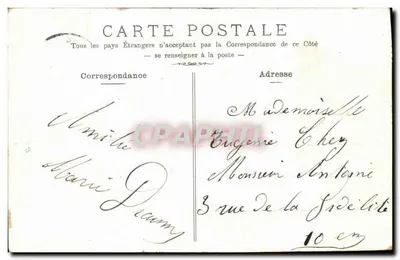 CARTE POSTALE
Tous les pays Étrangers n'acceptent pas la Correspondance de ce Côté
— se renseigner à la poste —
Correspondance
Amitié
Marie
Adresse
Mademoiselle
Eugenie Chez
Monsieur Antoine
3 rue de la Fidélité
10 em
CPAPHIL